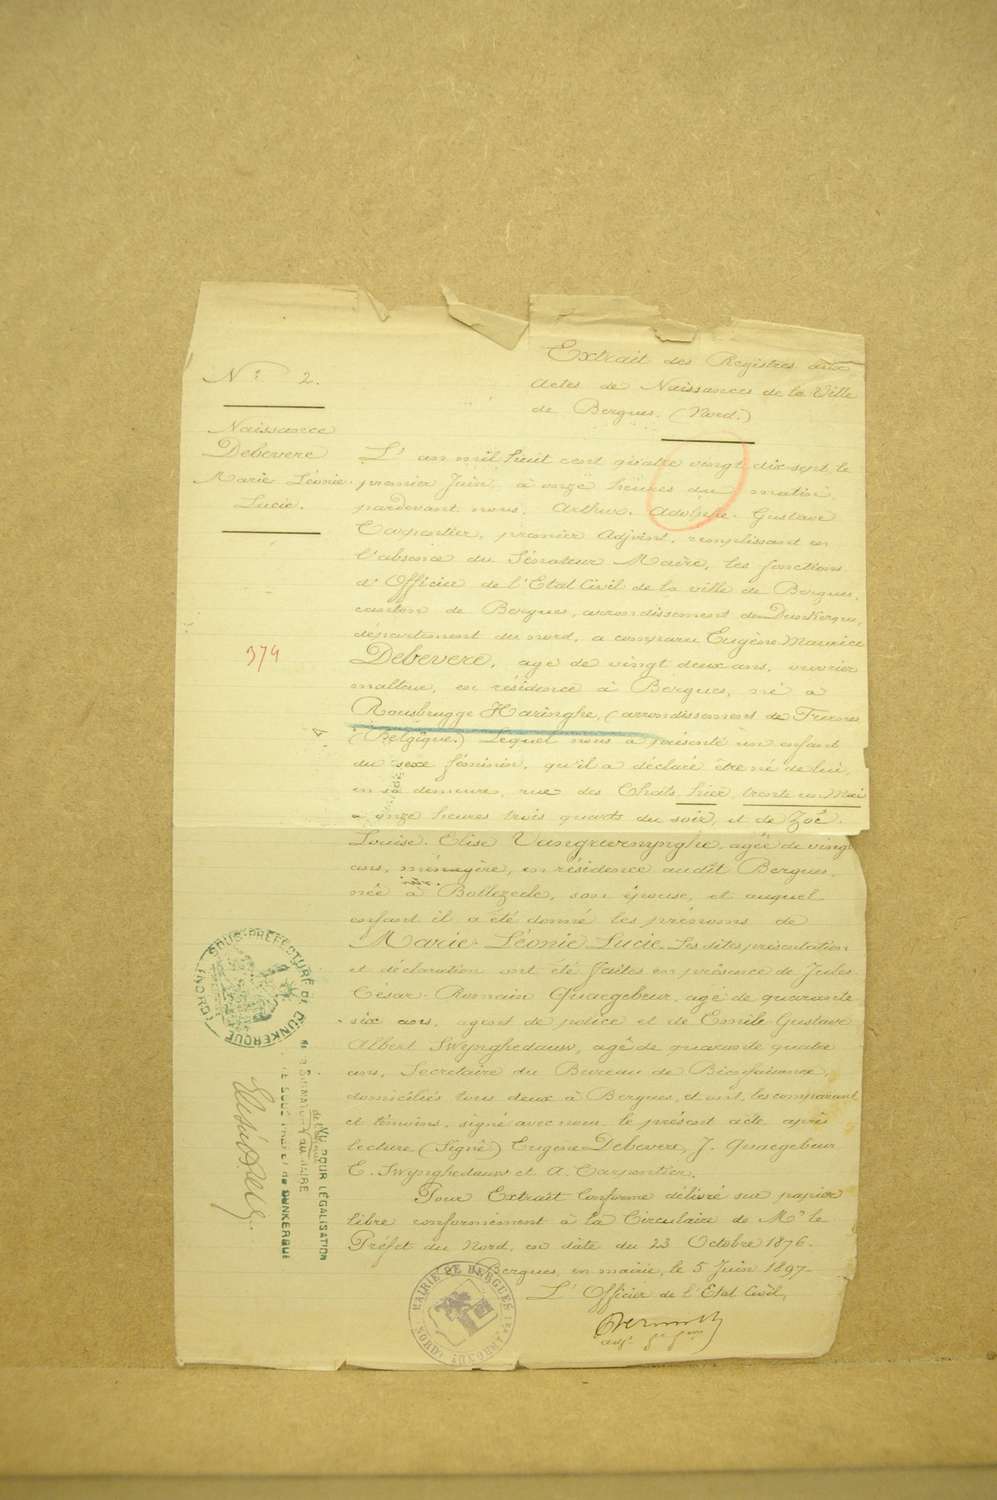 Extrait des Registres aux
Actes de Naissances de la Ville
de Bergues. (Nord.)
N° 2.
Naissance
Debevere
Marie Léonie
Lucie.
374
L'an mil huit cent quatre vingt dix-sept, le
premier Juin, à onze heures du matin,
pardevant nous, Arthur, Adolphe, Gustave
Carpentier, premier Adjoint, remplissant en
l'absence du Sénateur Maire, les fonctions
d'Officier de l'Etat Civil de la ville de Bergues,
canton de Bergues, arrondissement de Dunkerque,
département du nord, a comparu Eugène Maurice
Debevere, agé de vingt deux ans, ouvrier
malteur, en résidence à Bergues, né à
Rousbrugge Haringhe, (arrondissement de Furnes
(Belgique.) Lequel nous a présenté un enfant
du sexe féminin, qu'il a déclaré être né de lui,
en sa demeure, rue des Chats hier trente un Mai
à onze heures trois quarts du soir, et de Zoé
Louise Elise agée de vingt
ans, ménagère, en résidence audit Bergues,
née à Bollezeele, son épouse, et auquel
enfant il a été donné les prénoms de
Marie Léonie Lucie. Les dites présentation
et déclaration ont été faites en présence de Jules
César Romain Quaegebeur, agé de quarante
six ans, agent de police et de Emile Gustave
Albert Swynghedauw, agé de quarante quatre
ans, Secrétaire du Bureau de Bienfaisance,
domiciliés tous deux à Bergues, et ont, les comparant
et témoins, signé avec nous le présent acte, après
lecture (Signé) Eugène Debevere, J. Quaegebeur
E. Swynghedauw et A. Carpentier.
Pour Extrait Conforme délivré sur papier
libre conformément à la Circulaire de Mr le
Préfet du Nord, en date du 23 Octobre 1876.
Bergues, en mairie, le 5 Juin 1897
L'Officier de l'Etat Civil,
SOUS-PRÉFECTURE DE DUNKERQUE (NORD)
VU POUR LÉGALISATION
LE SOUS PRÉFET DE DUNKERQUE
MAIRIE DE BERGUES